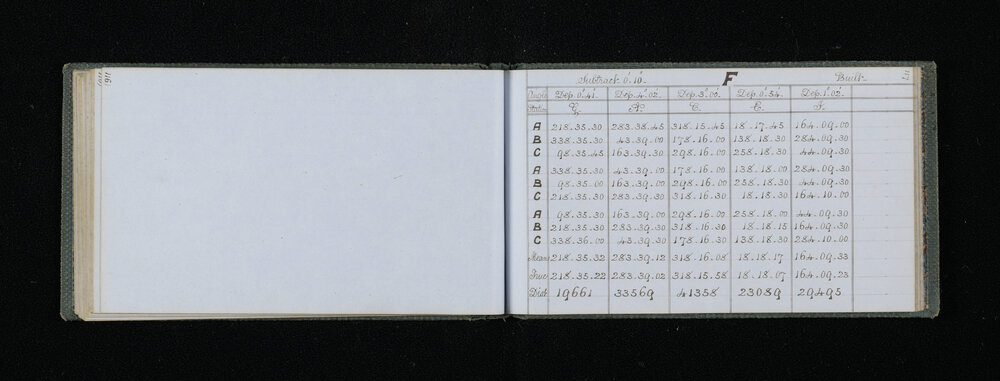 Subtract 0°.10" F Built
Angle Dep. 0.41' Dep. 4.02' Dep. 3.00' Dep. 0.54' Dep. 1.02'
Station G A C E I
A 218.35.30 283.38.45 318.15.45 18.17.45 164.09.00
B 338.35.30 43.39.00 178.16.00 138.18.30 284.09.30
C 98.35.45 163.39.30 298.16.00 258.18.30 44.09.30
A 338.35.30 43.39.00 178.16.00 138.18.00 284.09.30
B 98.35.00 163.39.00 298.16.00 258.18.30 44.09.30
C 218.35.30 283.39.30 318.16.30 18.18.30 164.10.00
A 98.35.30 163.39.00 298.16.00 258.18.00 44.09.30
B 218.35.30 283.39.30 318.16.30 18.18.15 164.09.30
C 338.36.00 43.39.30 178.16.30 138.18.30 284.10.00
Mean 218.35.32 283.39.12 318.16.08 18.18.17 164.09.33
True 218.35.22 283.39.02 318.15.58 18.18.07 164.09.23
Dist 19661 33569 41358 23089 29495